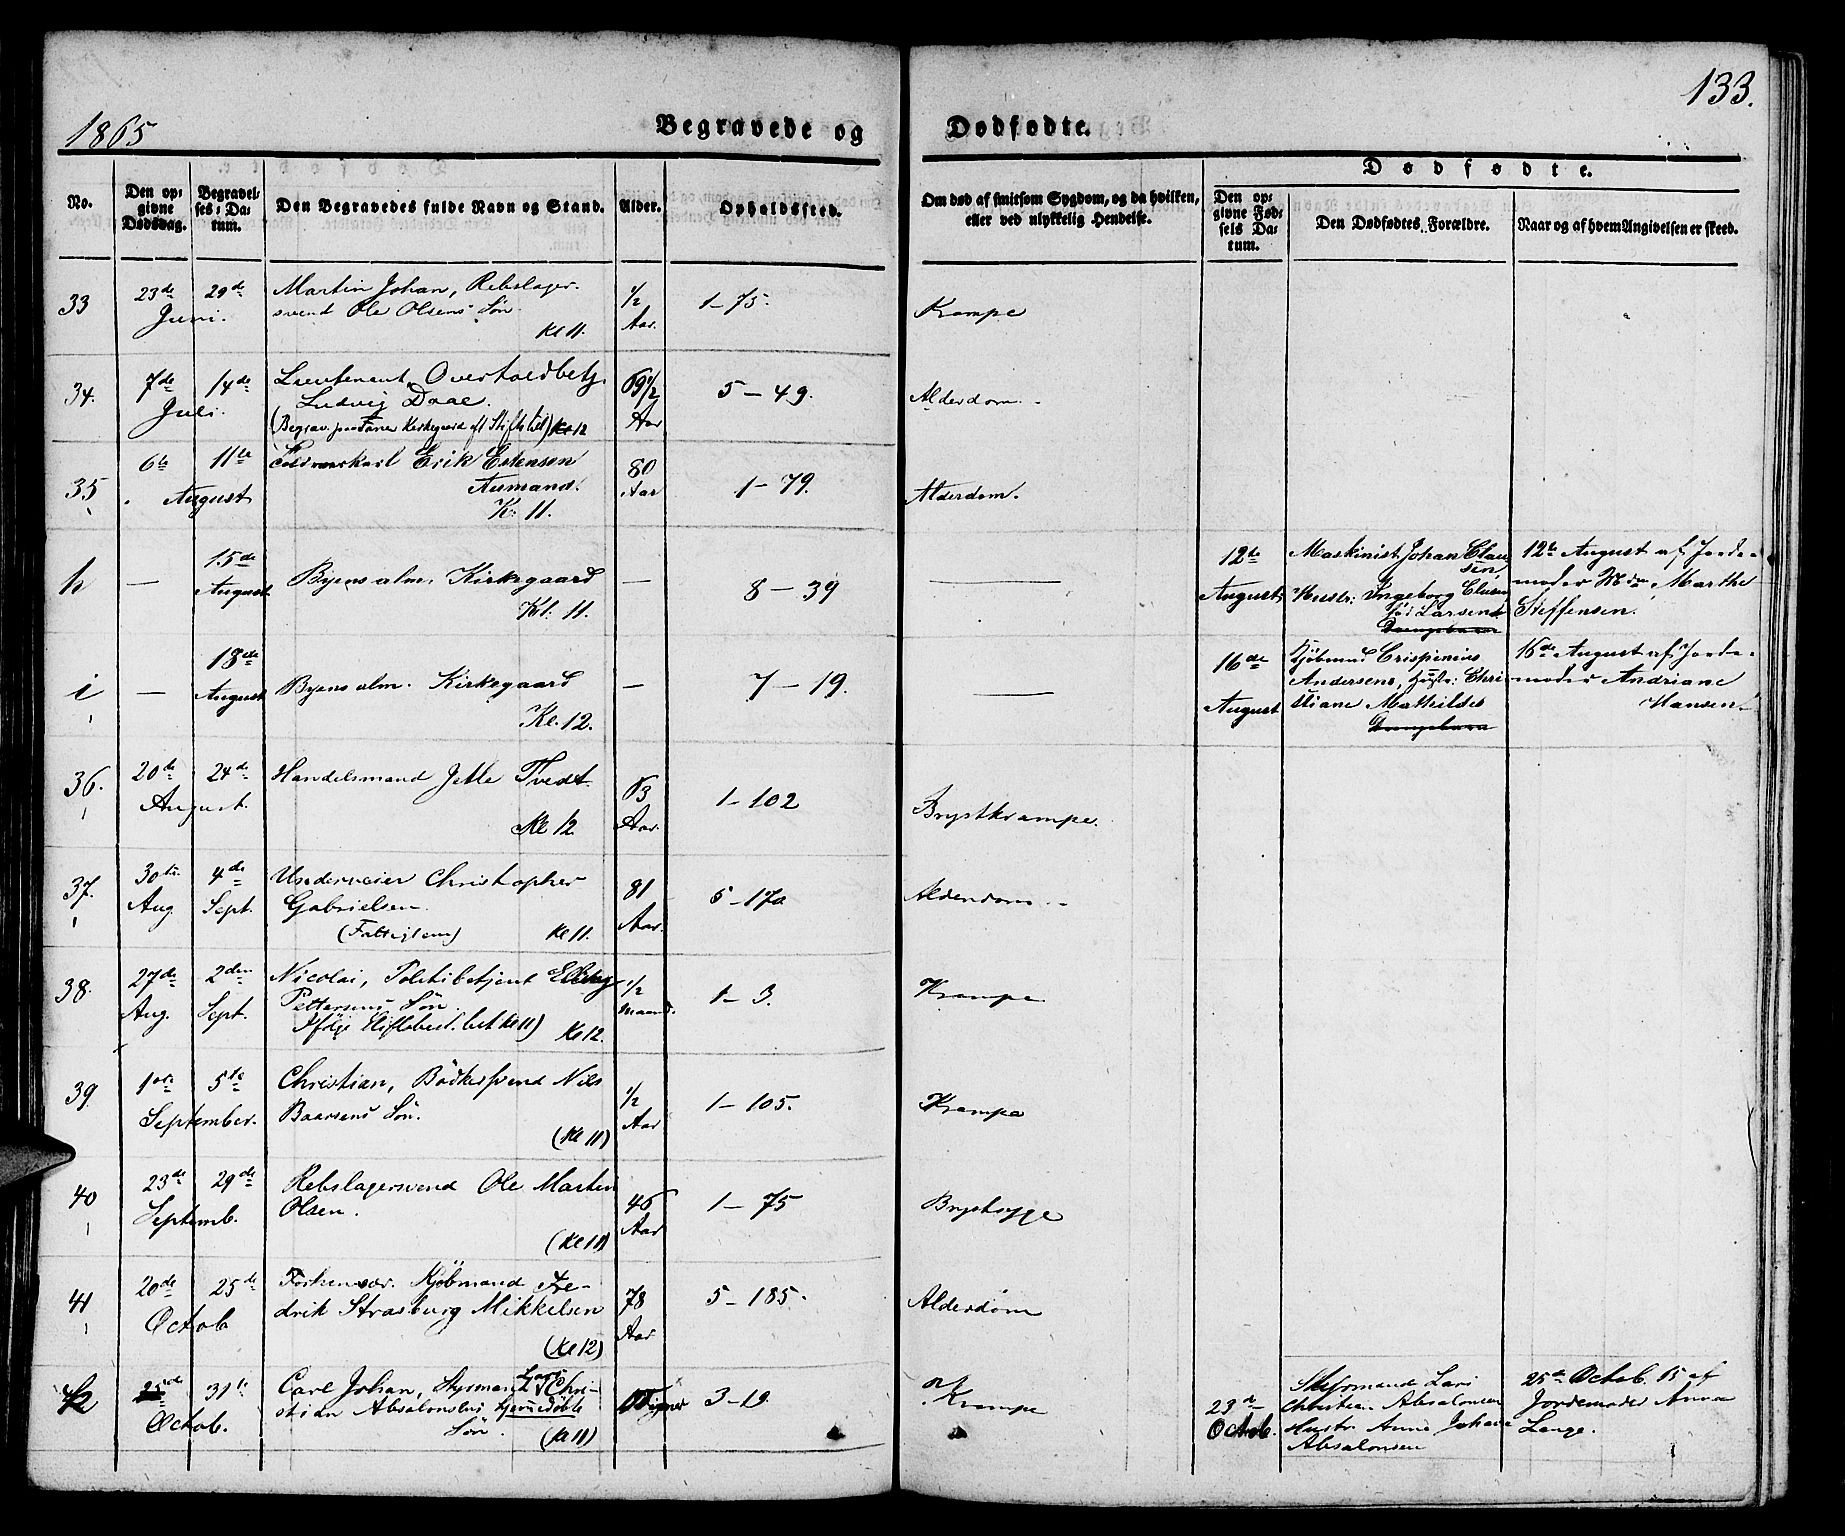 1865
Begravede og
Dødfødte.
133.
No.
Den op-
givne
Dødsdag.
Begravel-
ses-Da-
tum.
Den Begravedes fulde Navn og Stand.
Alder.
Opholdssted.
Om død af smitsom Sygdom, og da hvilken,
eller ved ulykkelig Hendelse.
Dødfødte.
Den op-
givne Fød-
sels Da-
tum.
Den Dødfødtes Forældre.
Naar og af hvem Angivelsen er skeed.
33
23de
29de
Juni.
Martin Johan, Rebslager-
svend Ole Olsens Søn.
Kl 11.
1/2
Aar.
1-75.
Krampe
34.
7de
14de
Juli.
Lieutenant, Overtoldbetj.
Ludvig Daae.
Kl 12
69 1/2
Aar
5-49.
Alderdom.
35
6te
11te
August
Erik Estensen
Aumand.
K. 11.
80
Aar
1-79.
Alderdom.
h
—
15de
August
Byens alm. Kirkegaard
Kl. 11.
—
8-39
—
12te
August
Maskinist Johan Clau-
sen,
Hustr: Ingeborg
fød Larsen
Drengebarn
12te August af Jorde-
moder Mdm Marthe
Steffensen.
i
—
18de
August
Byens alm. Kirkegaard
Kl. 12.
—
7-19.
—
16de
August
Kjøbmd Crispinius
Andersens, Hustr: Chri-
stiane Mathildes
Drengebarn
16de August af Jorde-
moder Andriane
Hansen.
36.
20de
24de
August.
Handelsmand Jetle Tvedt
Kl 12
63
Aar.
1-102
Brystkrampe.
37.
30te
Aug.
4de
Sept.
Underveier Christopher
Gabrielsen.
(Fattiglem)
Kl 11.
81
Aar.
5-170
Alderdom.
38.
27de
Aug.
2den
Sept.
Nicolai, Politibetjent
Pettersens Søn.
Kl 12.
1/2
Maaned.
1-3.
Krampe
39
1ste
5te
September.
Christian, Bødkersvend Nils
Baarsens Søn.
(Kl 11)
1/2
Aar
1-105.
Krampe
40
23de
29de
Septemb.
Rebslagersvend Ole Martin
Olsen.
(Kl 11)
46
Aar
1-75
Brystsyge
41
20de
25de
Octob
Forhenvær. Kjøbmand Fre-
drik Strasburg Mikkelsen
(Kl 12)
78
Aar
5-185.
Alderdom
42
31te
Octob.
Carl Johan, Styrmand Lars Chri-
stian Absalonsens hjemmedøbte
Søn.
(Kl 11)
3-19.
Krampe
23de
Octob.
Styrmand Lars
Christian Absalonsen
Hustr. Anne Johanne
Absalonsen
25de Octob. 65 af
Jordemoder Anna
Lange.